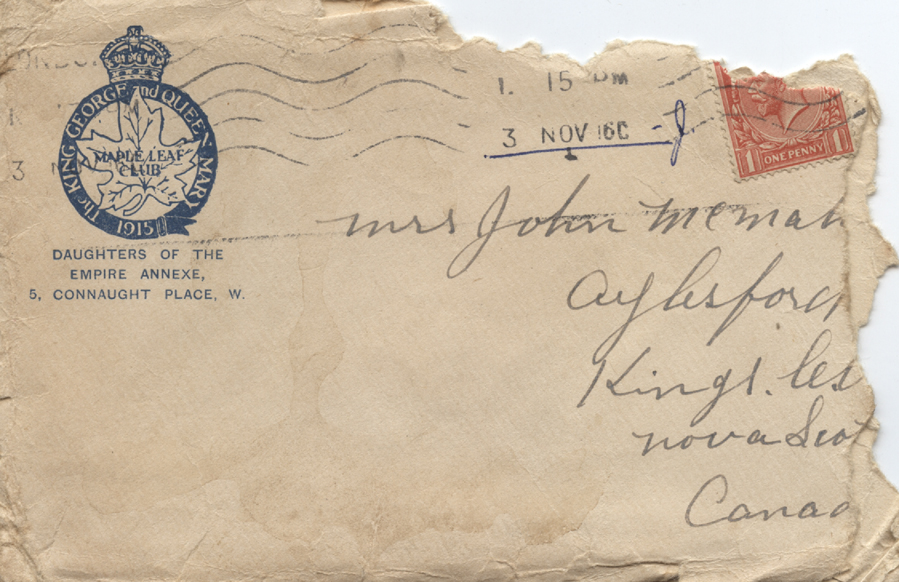 The KING GEORGE and QUEEN MARY
MAPLE LEAF
CLUB
1915
DAUGHTERS OF THE
EMPIRE ANNEXE,
5, CONNAUGHT PLACE, W.
1. 15 PM
3 NOV 16C
1 ONE PENNY 1
Mrs John McMah
Aylesford
Kings. Co
Nova Scot
Canad